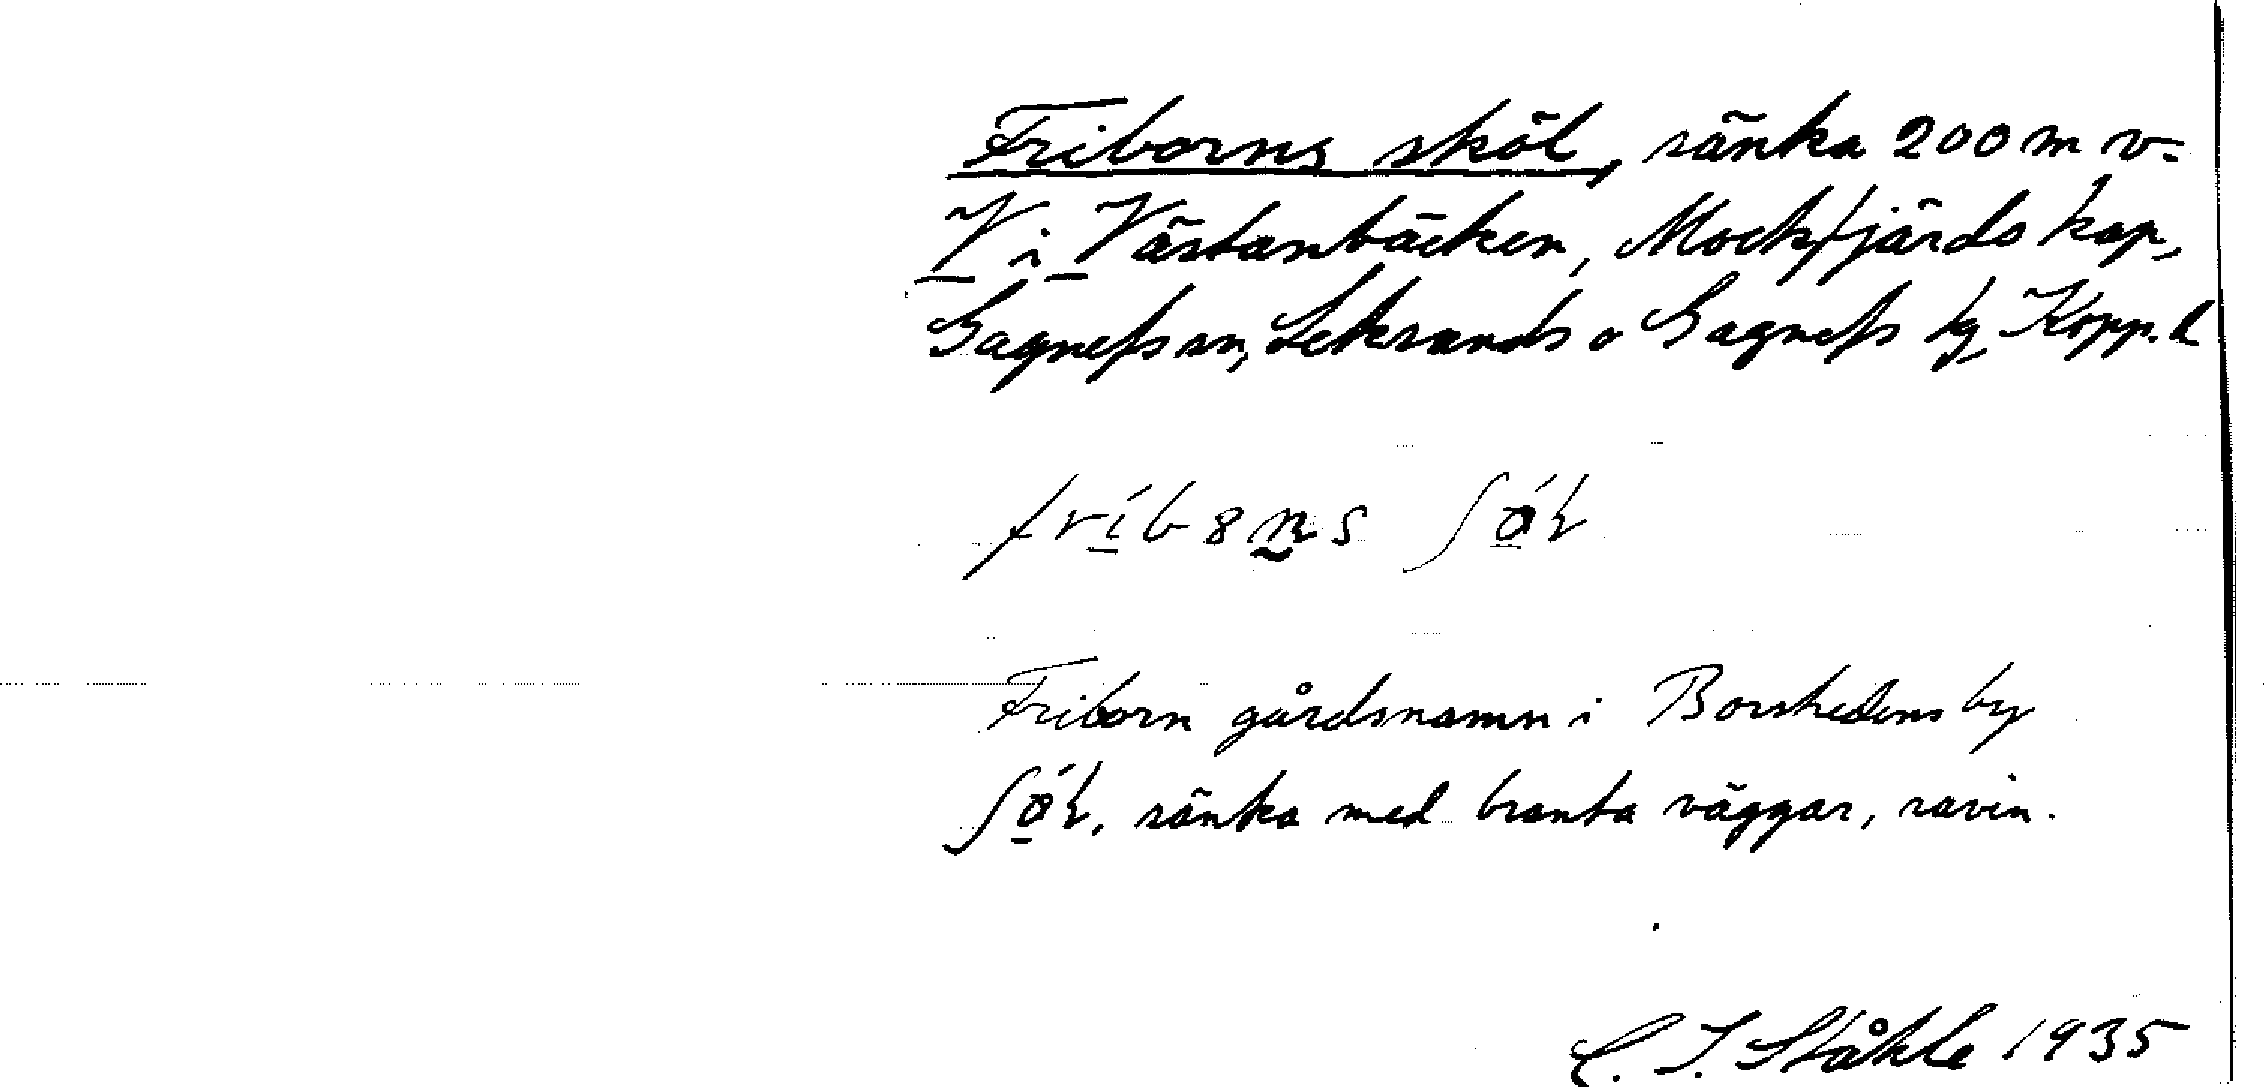 Friborns sköl, sänka 200 m v-
V i Västanbäcken, Mockfjärds kap,
Gagnefs sn, Leksands o Gagnefs tg Kopp. l
Friborn gårdsnamn i Borshedens by
sänka med branta väggar, ravin.
C. I. Ståhle 1935